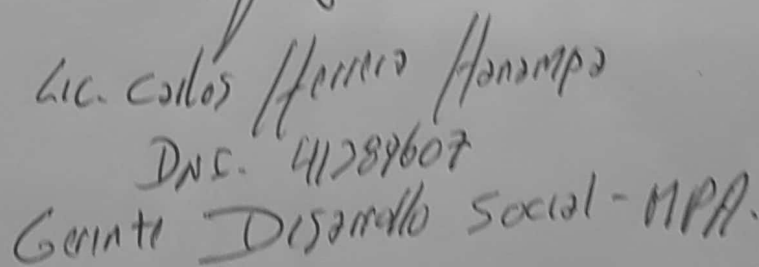 Lic. Carlos Herrera Hanampa
DNI. 41289607
Gerente Desarrollo Social - MPA.